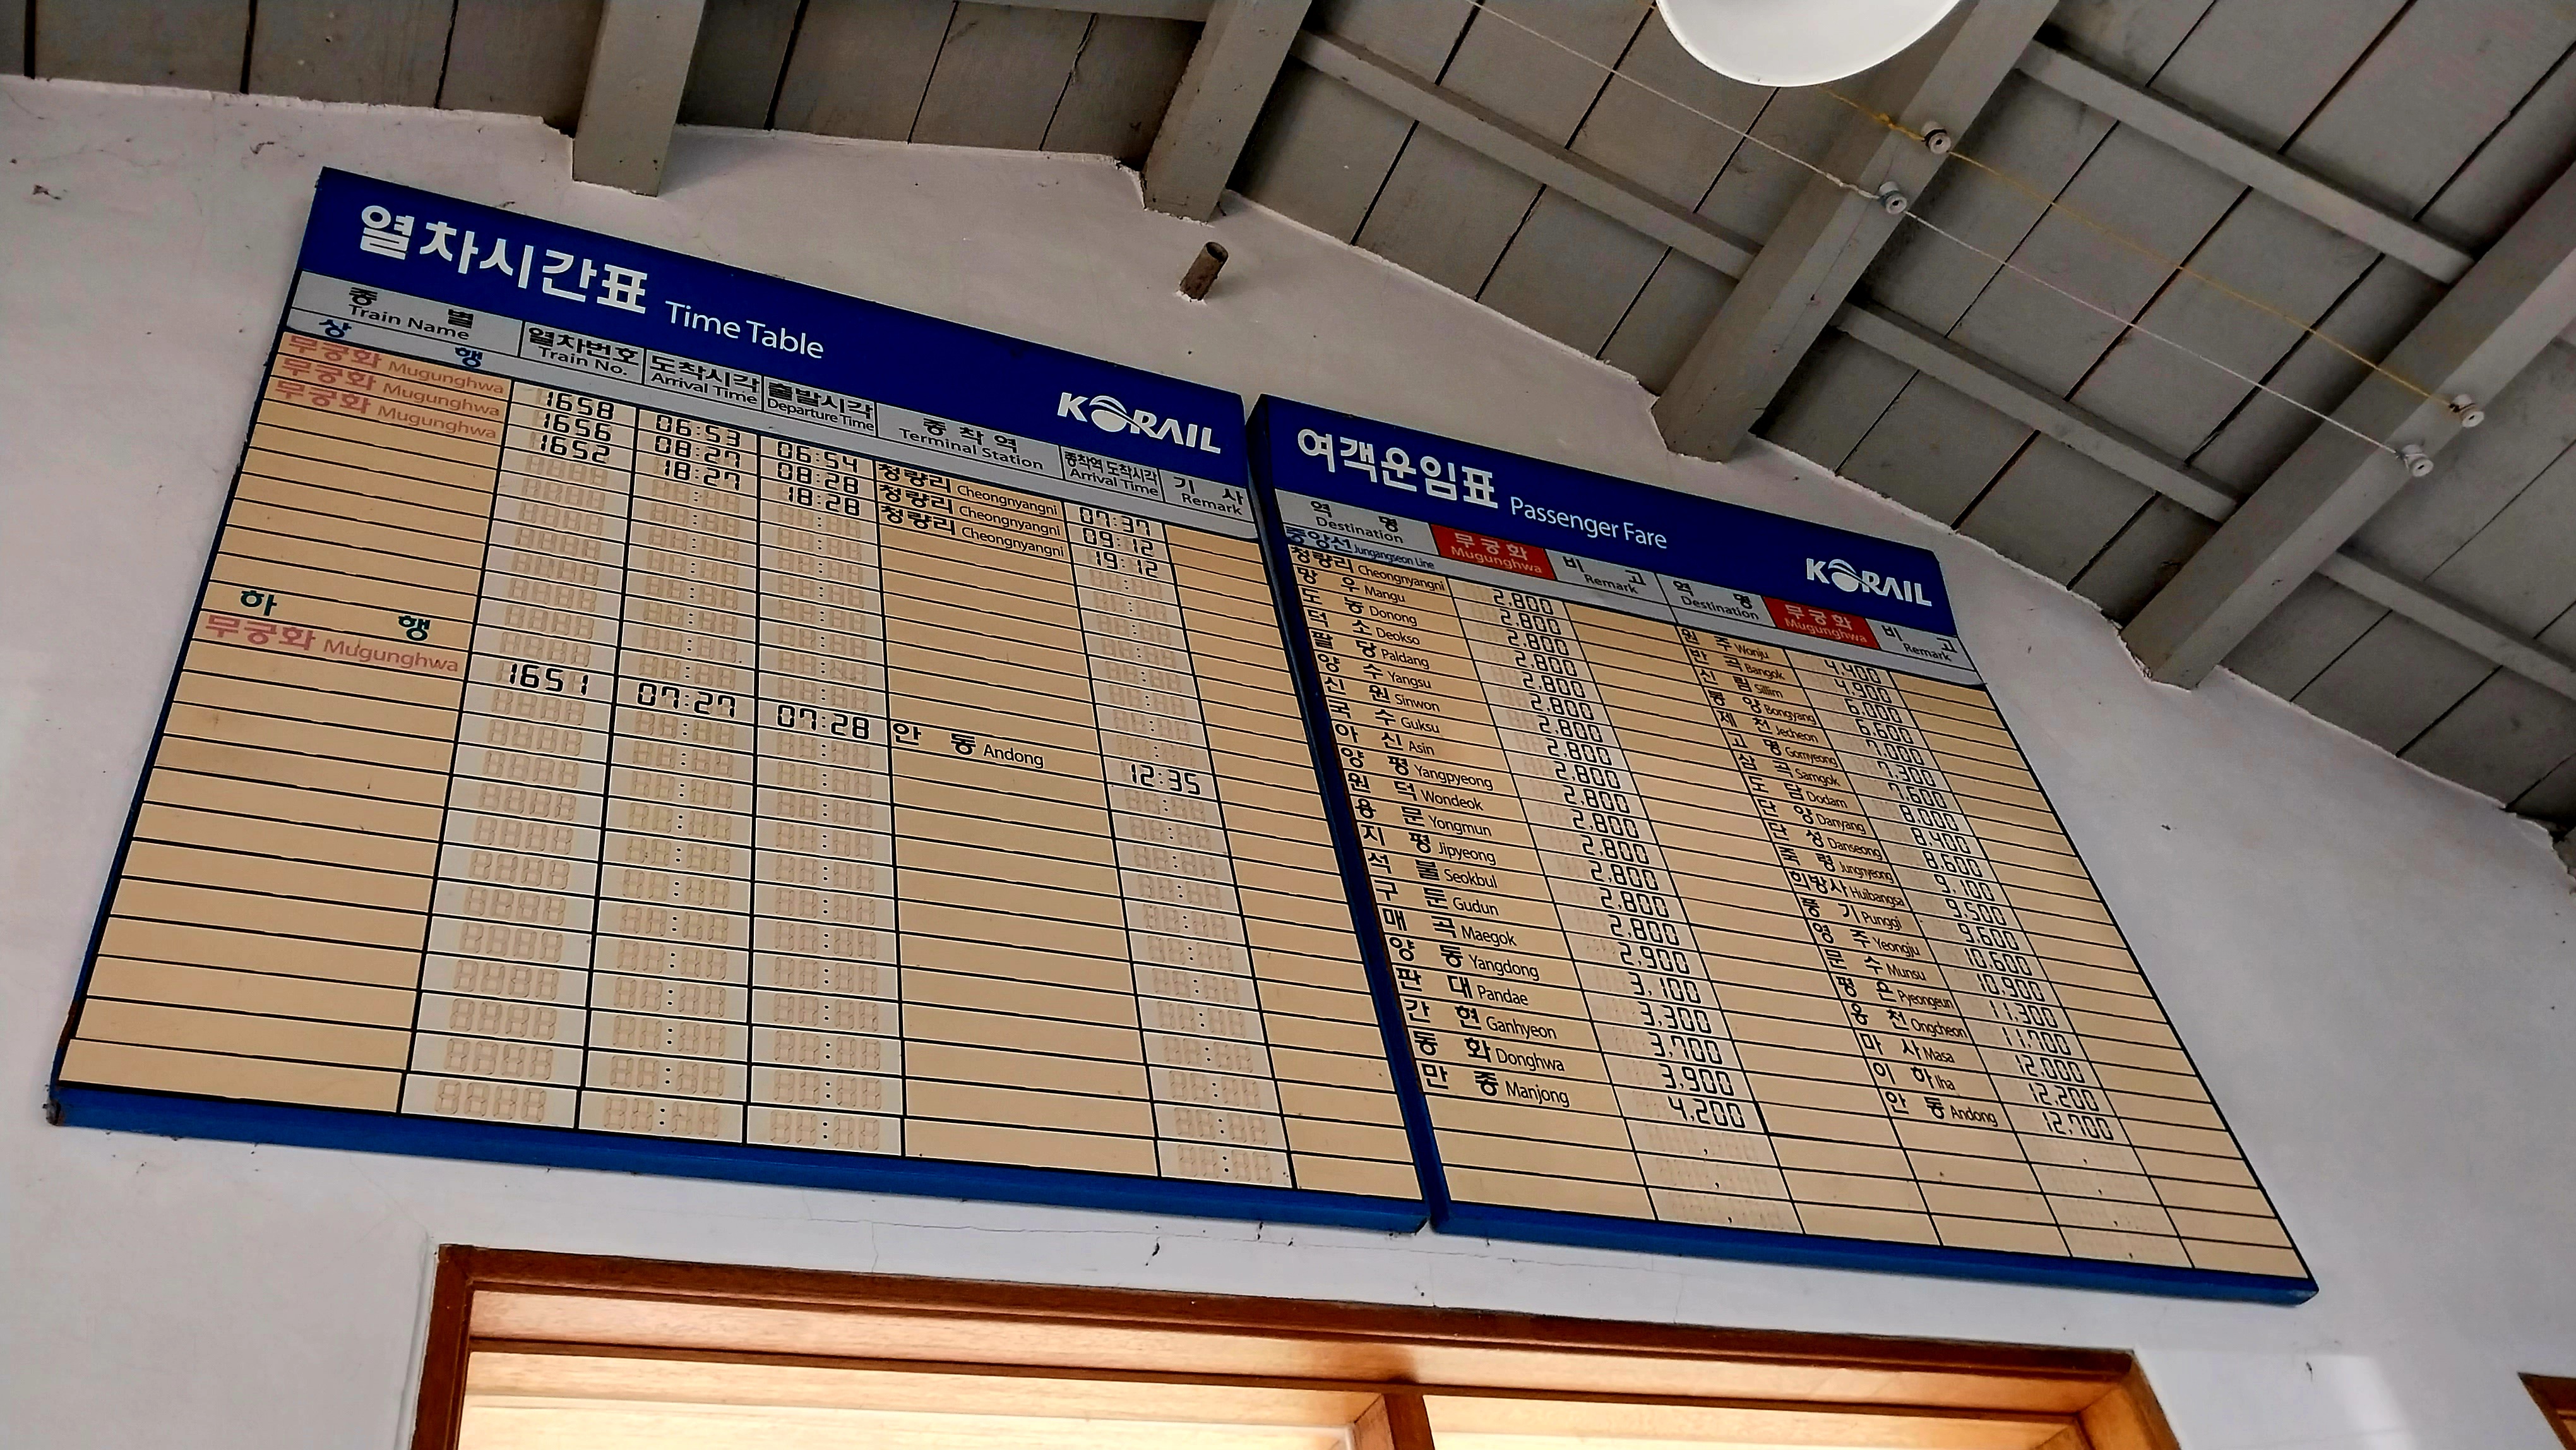 열차시간표 Time Table KORAIL
종 별 열차번호 도착시각 출발시각 종착역 종착역 도착시각 기 사
Train Name Train No. Arrival Time Departure Time Terminal Station Arrival Time Remark
상 행
무궁화 Mugunghwa 1658 06:53 06:54 청량리 Cheongnyangni 07:37
무궁화 Mugunghwa 1656 08:27 08:28 청량리 Cheongnyangni 09:12
무궁화 Mugunghwa 1652 18:27 18:28 청량리 Cheongnyangni 19:12
하 행
무궁화 Mugunghwa 1651 07:27 07:28 안 동 Andong 12:35
여객운임표 Passenger Fare KORAIL
역 명 무궁화 비 고 역 명 무궁화 비 고
Destination Mugunghwa Remark Destination Mugunghwa Remark
중앙선 Jungangseon Line
청량리 Cheongnyangni 2,800
망 우 Mangu 2,800
도 농 Donong 2,800
덕 소 Deokso 2,800
팔 당 Paldang 2,800
양 수 Yangsu 2,800
신 원 Sinwon 2,800
국 수 Guksu 2,800
아 신 Asin 2,800
양 평 Yangpyeong 2,800
원 덕 Wondeok 2,800
용 문 Yongmun 2,800
지 평 Jipyeong 2,800
석 불 Seokbul 2,800
구 둔 Gudun 2,800
매 곡 Maegok 2,900
양 동 Yangdong 3,100
판 대 Pandae 3,300
간 현 Ganhyeon 3,700
동 화 Donghwa 3,900
만 종 Manjong 4,200
원 주 Wonju 4,400
반 곡 Bangok 4,900
신 림 Sillim 6,000
봉 양 Bongyang 6,600
제 천 Jecheon 7,000
고 명 Gomyeong 7,300
삼 곡 Samgok 7,600
도 담 Dodam 8,000
단 양 Danyang 8,400
단 성 Danseong 8,600
죽 령 Jungnyeong 9,100
희방사 Huibangsa 9,500
풍 기 Punggi 9,600
영 주 Yeongju 10,600
문 수 Munsu 10,900
평 은 Pyeongeun 11,300
옹 천 Ongcheon 11,700
마 사 Masa 12,000
이 하 Iha 12,200
안 동 Andong 12,700